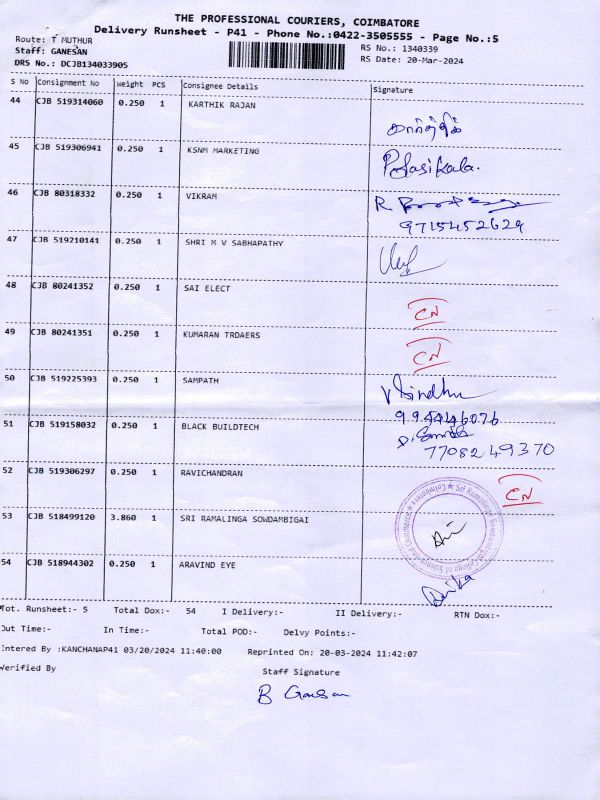 THE PROFESSIONAL COURIERS, COIMBATORE
Delivery Runsheet - P41 - Phone No.:0422-3505555 - Page No.:5
Route: T MUTHUR
RS No.: 1340339
Staff: GANESAN
RS Date: 20-Mar-2024
DRS No.: DCJB134033905
S No Consignment No Weight PCS Consignee Details Signature
44 CJB 519314060 0.250 1 KARTHIK RAJAN கார்த்திக்
45 CJB 519306941 0.250 1 KSNM MARKETING
46 CJB 80318332 0.250 1 VIKRAM R.
9715452629
47 CJB 519210141 0.250 1 SHRI M V SABHAPATHY
48 CJB 80241352 0.250 1 SAI ELECT CN
49 CJB 80241351 0.250 1 KUMARAN TRDAERS CN
50 CJB 519225393 0.250 1 SAMPATH
51 CJB 519158032 0.250 1 BLACK BUILDTECH
7708249370
52 CJB 519306297 0.250 1 RAVICHANDRAN CN
53 CJB 518499120 3.860 1 SRI RAMALINGA SOWDAMBIGAI
54 CJB 518944302 0.250 1 ARAVIND EYE
Tot. Runsheet:- 5 Total Dox:- 54 I Delivery:- II Delivery:- RTN Dox:-
Out Time:- In Time:- Total POD:- Delvy Points:-
Entered By :KANCHANAP41 03/20/2024 11:40:00 Reprinted On: 20-03-2024 11:42:07
Verified By Staff Signature
B Ganesan